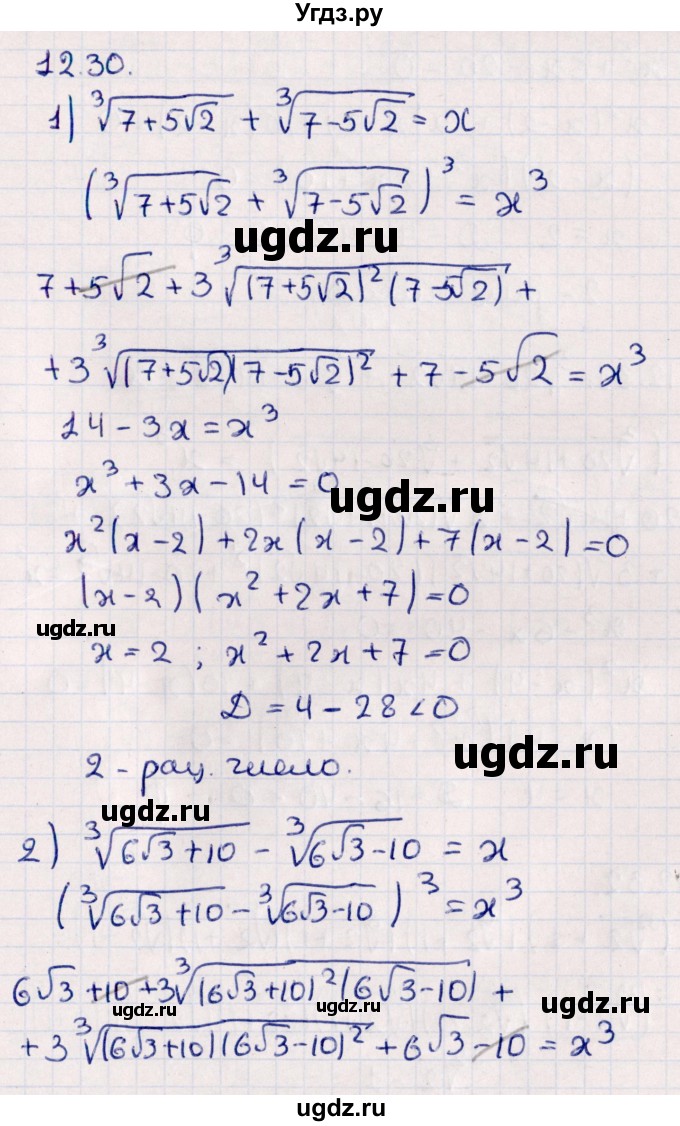 Угдз.ру
12.30.
1) ∛(7+5√2) + ∛(7-5√2) = x
(∛(7+5√2) + ∛(7-5√2))³ = x³
ugdz.ru
7+5√2 + 3∛((7+5√2)²(7-5√2)) +
+ 3∛((7+5√2)(7-5√2)²) + 7 - 5√2 = x³
14 - 3x = x³
x³ + 3x - 14 = 0
ugdz.ru
x²(x-2) + 2x(x-2) + 7(x-2) = 0
(x-2)(x² + 2x + 7) = 0
ugdz.ru
x = 2 ; x² + 2x + 7 = 0
Д = 4 - 28 < 0
ugdz.ru
2 - рац. число.
ugdz.ru
2) ∛(6√3+10) - ∛(6√3-10) = x
(∛(6√3+10) - ∛(6√3-10))³ = x³
6√3 + 10 + 3∛((6√3+10)²(6√3-10)) +
ugdz.ru
+ 3∛((6√3+10)(6√3-10)²) + 6√3 - 10 = x³
ugdz.ru
ugdz.ru